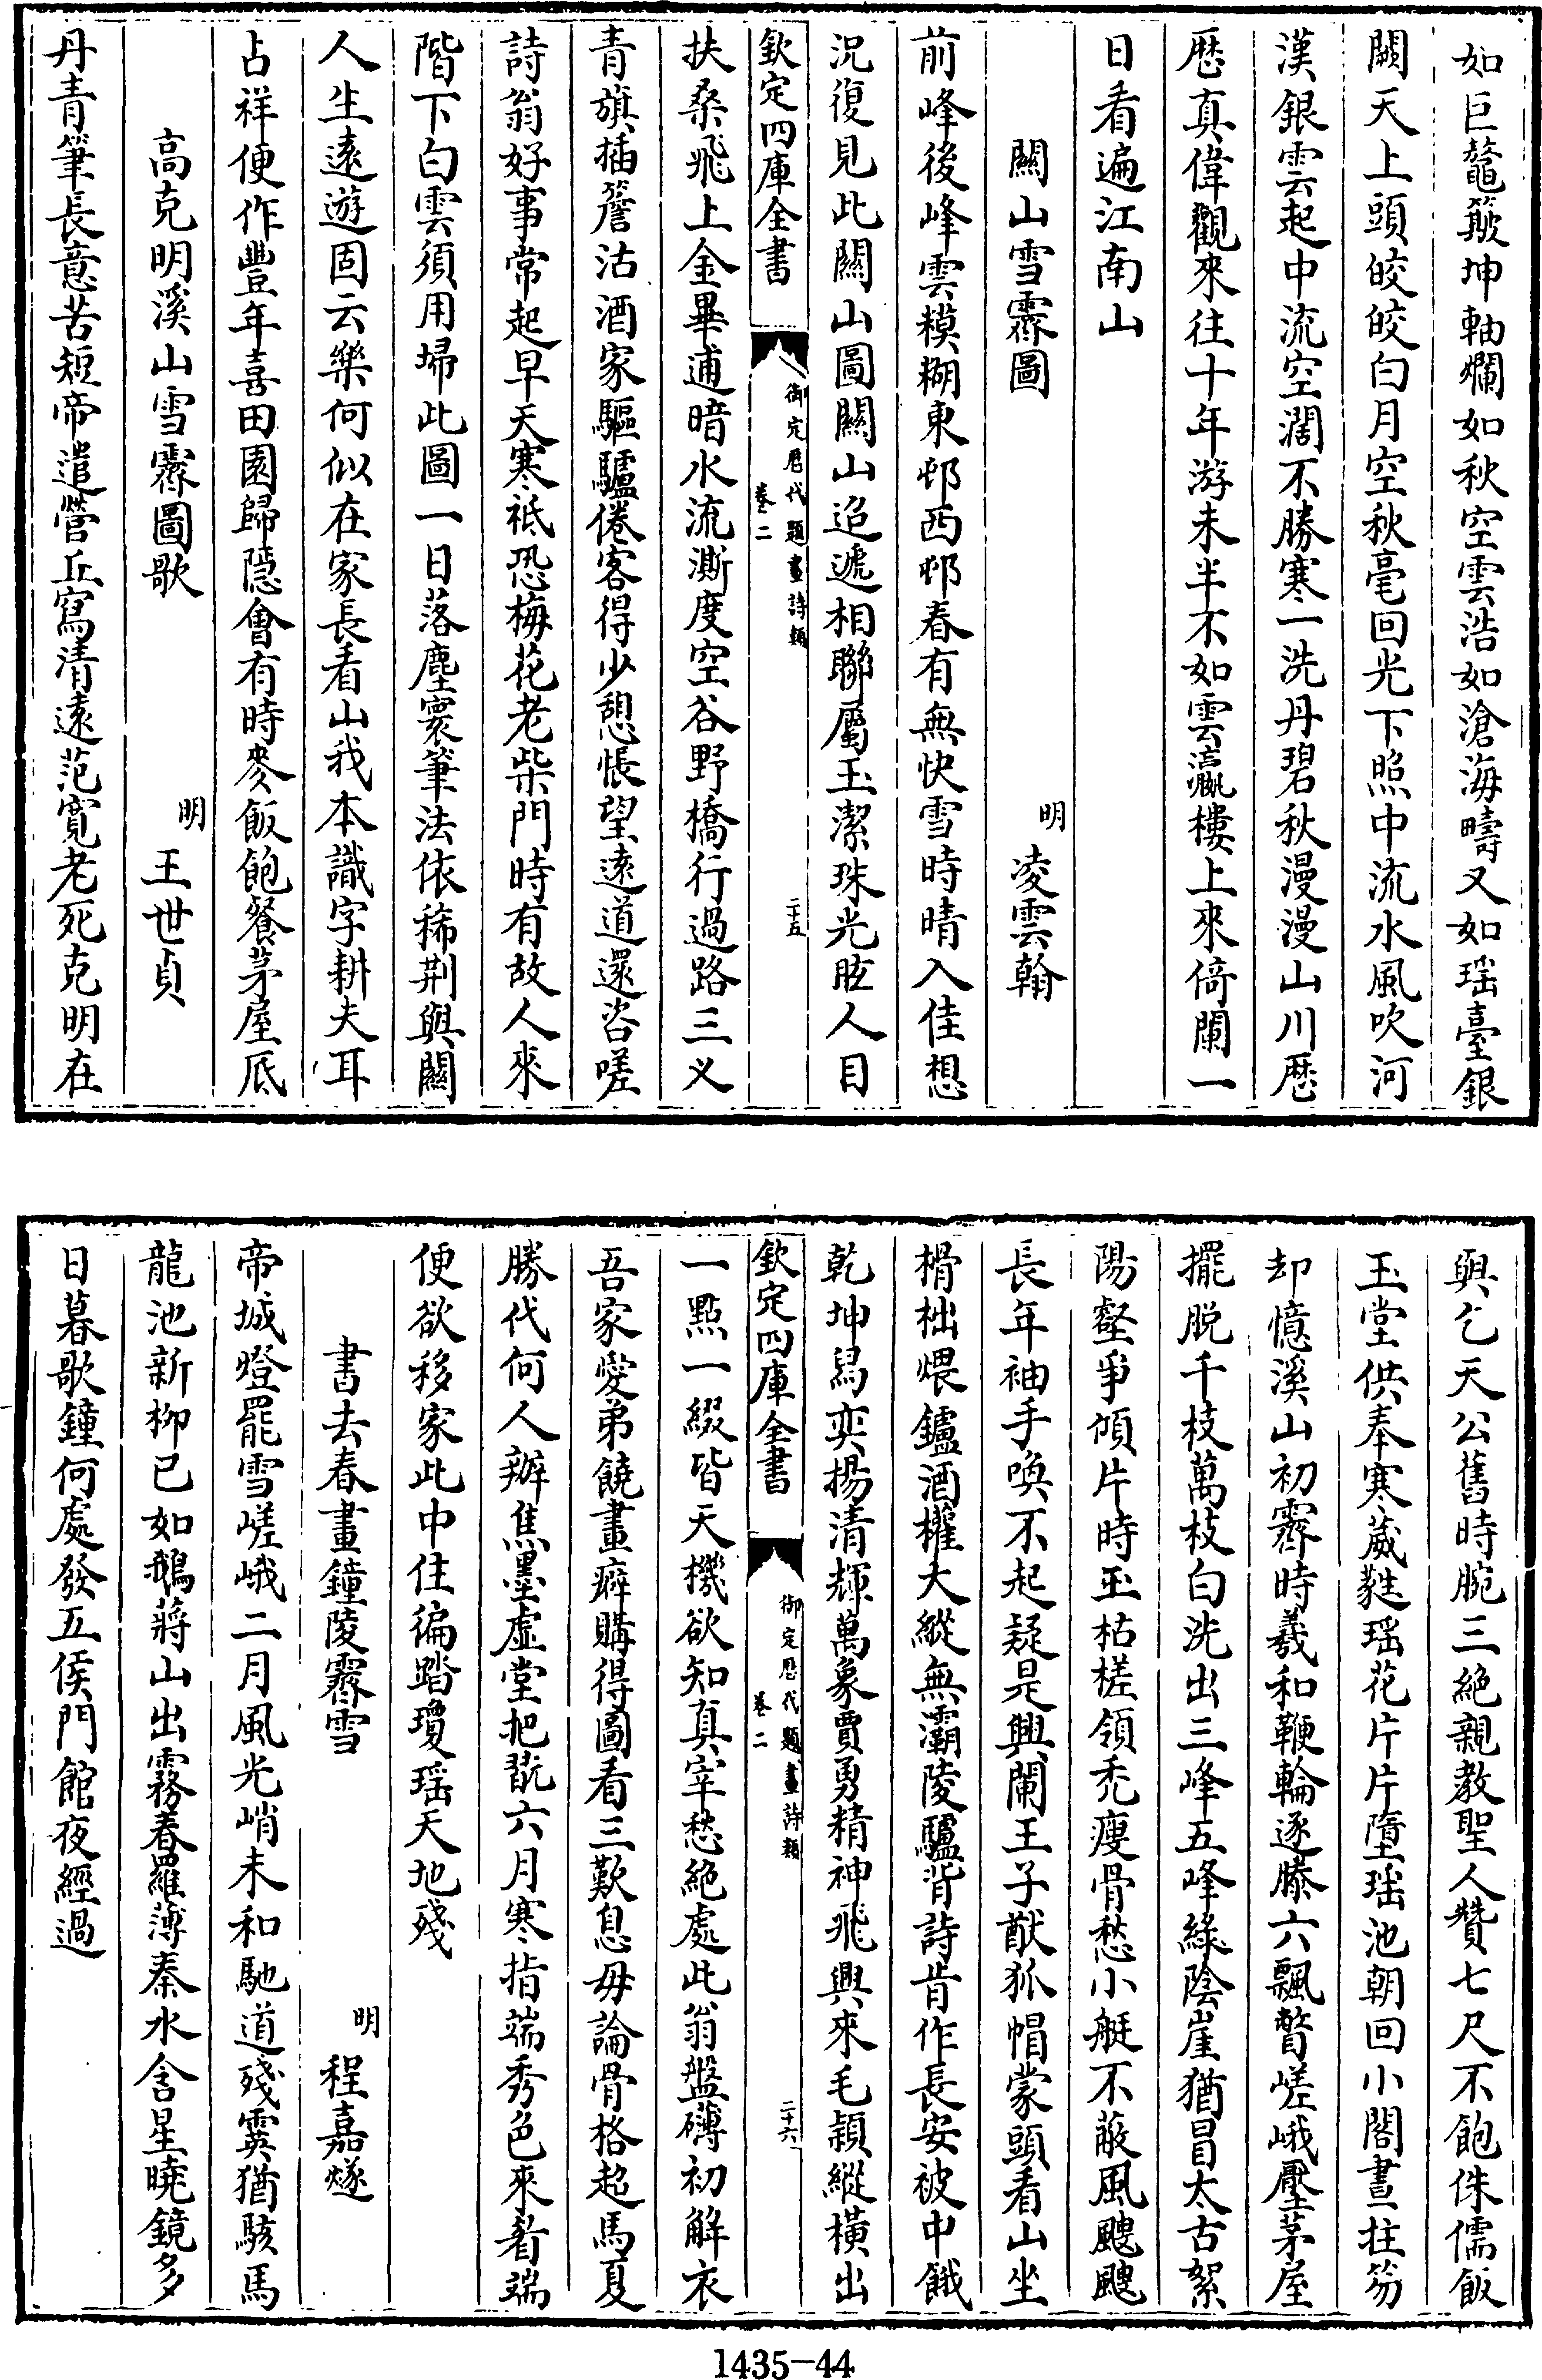 如巨鼇簸坤軸爛如秋空雲浩如滄海疇又如瑶臺銀
闕天上頭皎皎白月空秋毫回光下照中流水風吹河
漢銀雲起中流空濶不勝寒一洗丹碧秋漫漫山川歴
歴真偉觀來往十年游未半不如雲瀛樓上來倚闌一
日看遍江南山
關山雪霽圖
明 凌雲翰
前峰後峰雲模糊東邨西邨春有無快雪時晴入佳想
況復見此關山圖關山迢遞相聯屬玉潔珠光眩人目
欽定四庫全書
御定歴代題畫詩類
卷二
二十五
扶桑飛上金畢逋暗水流澌度空谷野橋行過路三乂
青旗插簷沽酒家驅驢倦客得少憩悵望遠道還咨嗟
詩翁好事常起早天寒祗恐梅花老柴門時有故人來
階下白雲須用埽此圖一日落塵寰筆法依稀荆與關
人生遠遊固云樂何似在家長看山我本識字耕夫耳
占祥便作豐年喜田園歸隱會有時麥飯飽餐茅屋底
高克明溪山雪霽圖歌
明 王世貞
丹青筆長意苦短帝遣營丘寫清遠范寛老死克明在
與乞天公舊時腕三絶親教聖人贊七尺不飽侏儒飯
玉堂供奉寒葳蕤瑶花片片墮瑶池朝回小閣晝拄笏
却憶溪山初霽時羲和鞭輪逐滕六飄瞥嵯峨壓茅屋
擺脱千枝萬枝白洗出三峰五峰緑陰崖猶冒太古絮
陽壑爭傾片時玉枯槎領秃瘦骨愁小艇不蔽風颼颼
長年袖手喚不起疑是興闌王子猷狐帽蒙頭看山坐
榾柮煨鑪酒權大縱無灞陵驢背詩肯作長安被中餓
乾坤舄奕揚清輝萬象賈勇精神飛興來毛穎縱橫出
欽定四庫全書
御定歴代題畫詩類
卷二
二十六
一點一綴皆天機欲知真宰愁絶處此翁盤礴初解衣
吾家愛弟饒畫癖購得圖看三歎息毋論骨格超馬夏
勝代何人辦焦墨虚堂把翫六月寒指端秀色來看端
便欲移家此中住徧踏瓊瑶天地殘
書去春畫鐘陵霽雪
明 程嘉燧
帝城燈罷雪嵯峨二月風光峭未和馳道殘霙猶駭馬
龍池新柳已如鵝蔣山出霧春羅薄秦水含星曉鏡多
日暮歌鐘何處發五侯門館夜經過
1435-44